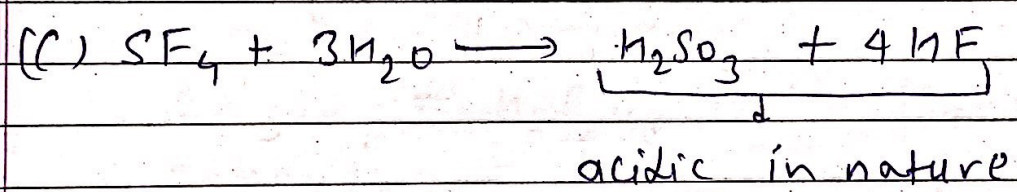 (C) SF₄ + 3H₂O ⟶ H₂SO₃ + 4HF
acidic in nature